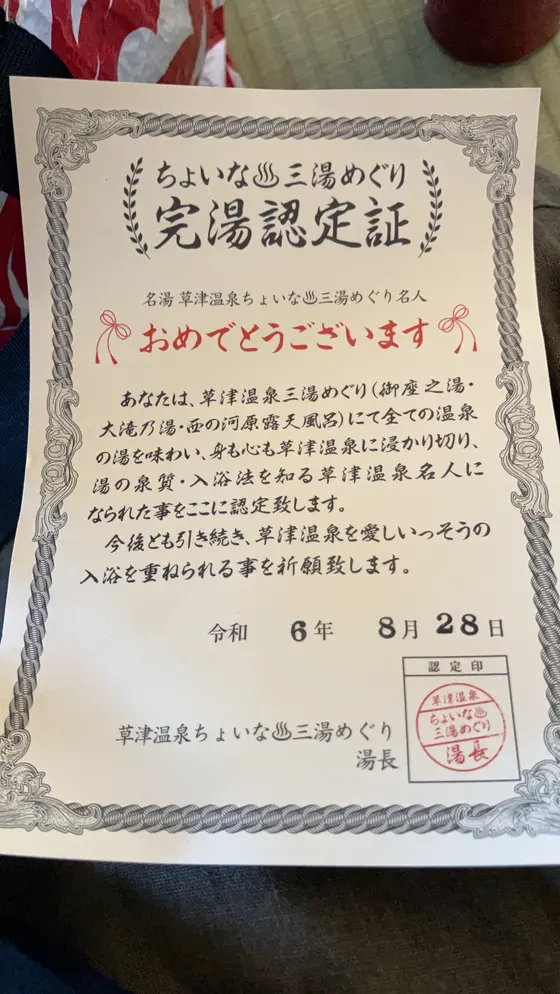 ちょいな♨三湯めぐり
完湯認定証
名湯 草津温泉ちょいな♨三湯めぐり名人
おめでとうございます
あなたは、草津温泉三湯めぐり(御座之湯・
大滝乃湯・西の河原露天風呂)にて全ての温泉
の湯を味わい、身も心も草津温泉に浸かり切り、
湯の泉質・入浴法を知る草津温泉名人に
なられた事をここに認定致します。
今後とも引き続き、草津温泉を愛しいっそうの
入浴を重ねられる事を祈願致します。
令和 6年 8月 28日
認定印
草津温泉
ちょいな♨
三湯めぐり
湯長
草津温泉ちょいな♨三湯めぐり
湯長